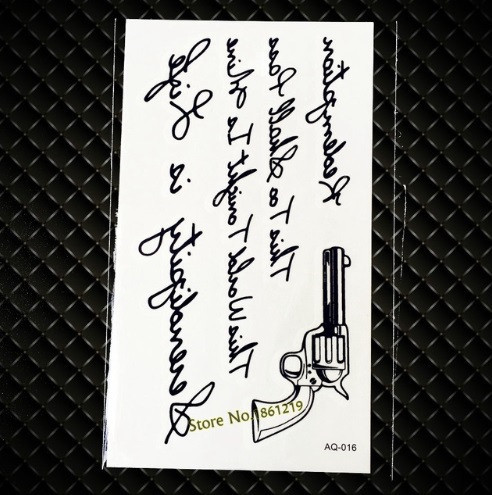 Redemption
This Too Shall Pass
This World Tonight Is Mine
Serendipity is Life
Store No.1861219
AQ-016